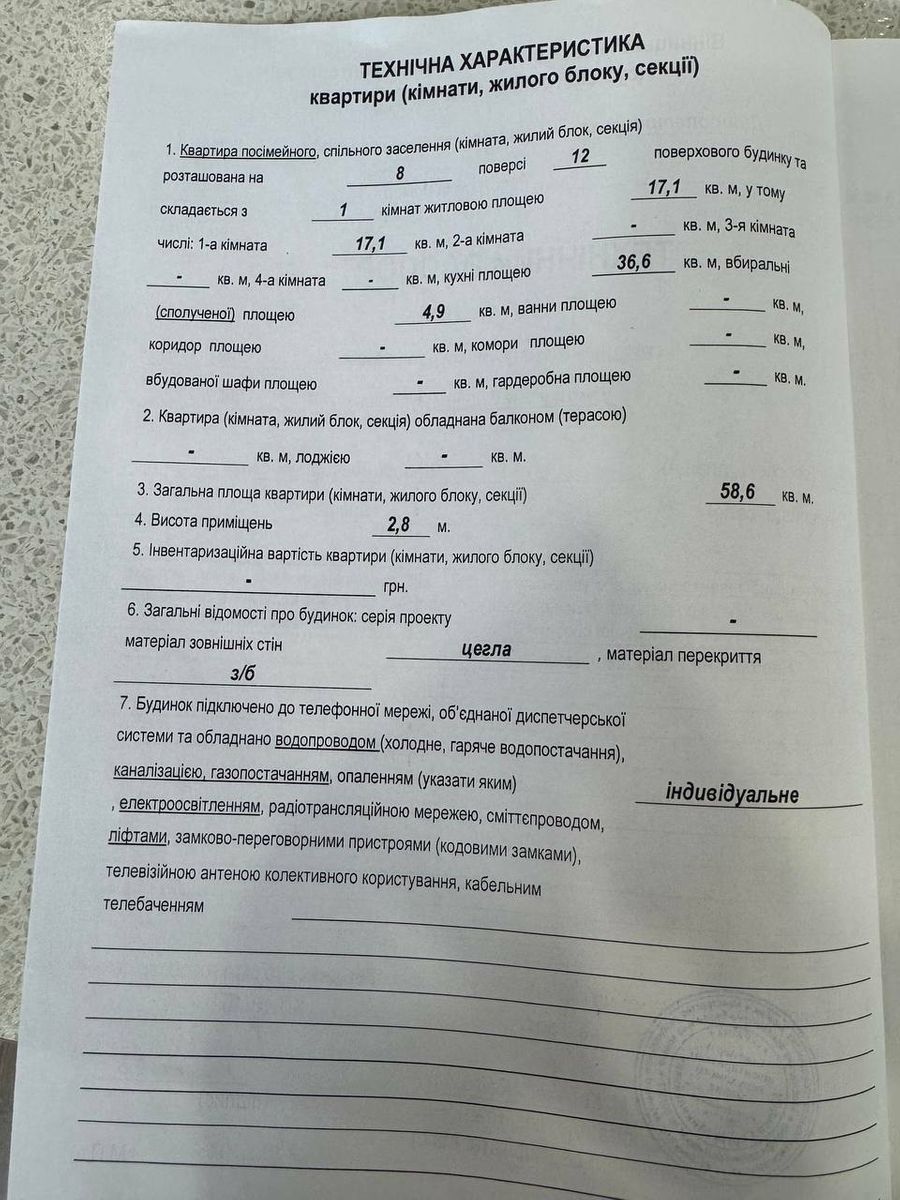 ТЕХНІЧНА ХАРАКТЕРИСТИКА
квартири (кімнати, жилого блоку, секції)
1. Квартира посімейного, спільного заселення (кімната, жилий блок, секція)
розташована на 8 поверсі 12 поверхового будинку та
складається з 1 кімнат житловою площею 17,1 кв. м, у тому
числі: 1-а кімната 17,1 кв. м, 2-а кімната - кв. м, 3-я кімната
- кв. м, 4-а кімната - кв. м, кухні площею 36,6 кв. м, вбиральні
(сполученої) площею 4,9 кв. м, ванни площею - кв. м,
коридор площею - кв. м, комори площею - кв. м,
вбудованої шафи площею - кв. м, гардеробна площею - кв. м.
2. Квартира (кімната, жилий блок, секція) обладнана балконом (терасою)
- кв. м, лоджією - кв. м.
3. Загальна площа квартири (кімнати, жилого блоку, секції) 58,6 кв. м.
4. Висота приміщень 2,8 м.
5. Інвентаризаційна вартість квартири (кімнати, жилого блоку, секції)
- грн.
6. Загальні відомості про будинок: серія проекту -
матеріал зовнішніх стін цегла , матеріал перекриття
з/б
7. Будинок підключено до телефонної мережі, об'єднаної диспетчерської
системи та обладнано водопроводом (холодне, гаряче водопостачання),
каналізацією, газопостачанням, опаленням (указати яким) індивідуальне
, електроосвітленням, радіотрансляційною мережею, сміттєпроводом,
ліфтами, замково-переговорними пристроями (кодовими замками),
телевізійною антеною колективного користування, кабельним
телебаченням